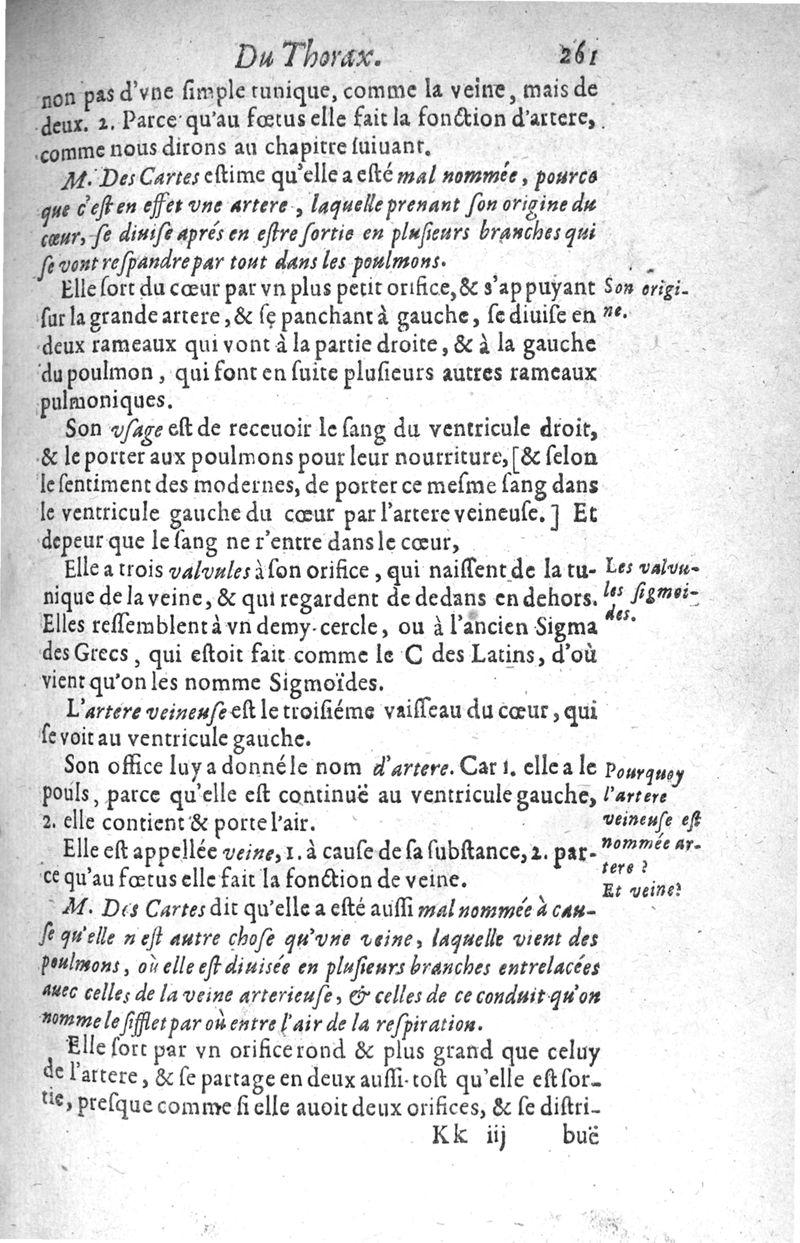 Du Thorax. 261
non pas d'vne ſimple tunique, comme la veine, mais de
deux. 2. Parce qu'au fœtus elle fait la fonction d'artere,
comme nous dirons au chapitre ſuiuant.
M. Des Cartes eſtime qu'elle a eſté mal nommée, pource
que c'eſt en effet vne artere, laquelle prenant ſon origine du
cœur, ſe diuiſe aprés en eſtre ſortie en pluſieurs branches qui
ſe vont reſpandre par tout dans les poulmons.
Elle ſort du cœur par vn plus petit orifice, & s'appuyant
Son origi-
ſur la grande artere, & ſe panchant à gauche, ſe diuiſe en
ne.
deux rameaux qui vont à la partie droite, & à la gauche
du poulmon, qui font en ſuite pluſieurs autres rameaux
pulmoniques.
Son vſage eſt de receuoir le ſang du ventricule droit,
& le porter aux poulmons pour leur nourriture, [& ſelon
le ſentiment des modernes, de porter ce meſme ſang dans
le ventricule gauche du cœur par l'artere veineuſe.] Et
depeur que le ſang ne r'entre dans le cœur,
Elle a trois valvules à ſon orifice, qui naiſſent de la tu-
Les valvu-
nique de la veine, & qui regardent de dedans en dehors.
les ſigmoi-
Elles reſſemblent à vn demy-cercle, ou à l'ancien Sigma
des.
des Grecs, qui eſtoit fait comme le C des Latins, d'où
vient qu'on les nomme Sigmoïdes.
L'artere veineuſe eſt le troiſiéme vaiſſeau du cœur, qui
ſe voit au ventricule gauche.
Son office luy a donné le nom d'artere. Car 1. elle a le
Pourquoy
pouls, parce qu'elle eſt continuë au ventricule gauche,
l'artere
2. elle contient & porte l'air.
veineuſe eſt
Elle eſt appellée veine, 1. à cauſe de ſa ſubſtance, 2. par-
nommée ar-
tere ?
ce qu'au fœtus elle fait la fonction de veine.
Et veine?
M. Des Cartes dit qu'elle a eſté auſſi mal nommée à cau-
ſe qu'elle n'eſt autre choſe qu'vne veine, laquelle vient des
poulmons, où elle eſt diuisée en pluſieurs branches entrelacées
auec celles de la veine arterieuſe, & celles de ce conduit qu'on
nomme le ſifflet par où entre l'air de la reſpiration.
Elle ſort par vn orifice rond & plus grand que celuy
de l'artere, & ſe partage en deux auſſi-toſt qu'elle eſt ſor-
tie, preſque comme ſi elle auoit deux orifices, & ſe diſtri-
Kk iij buë